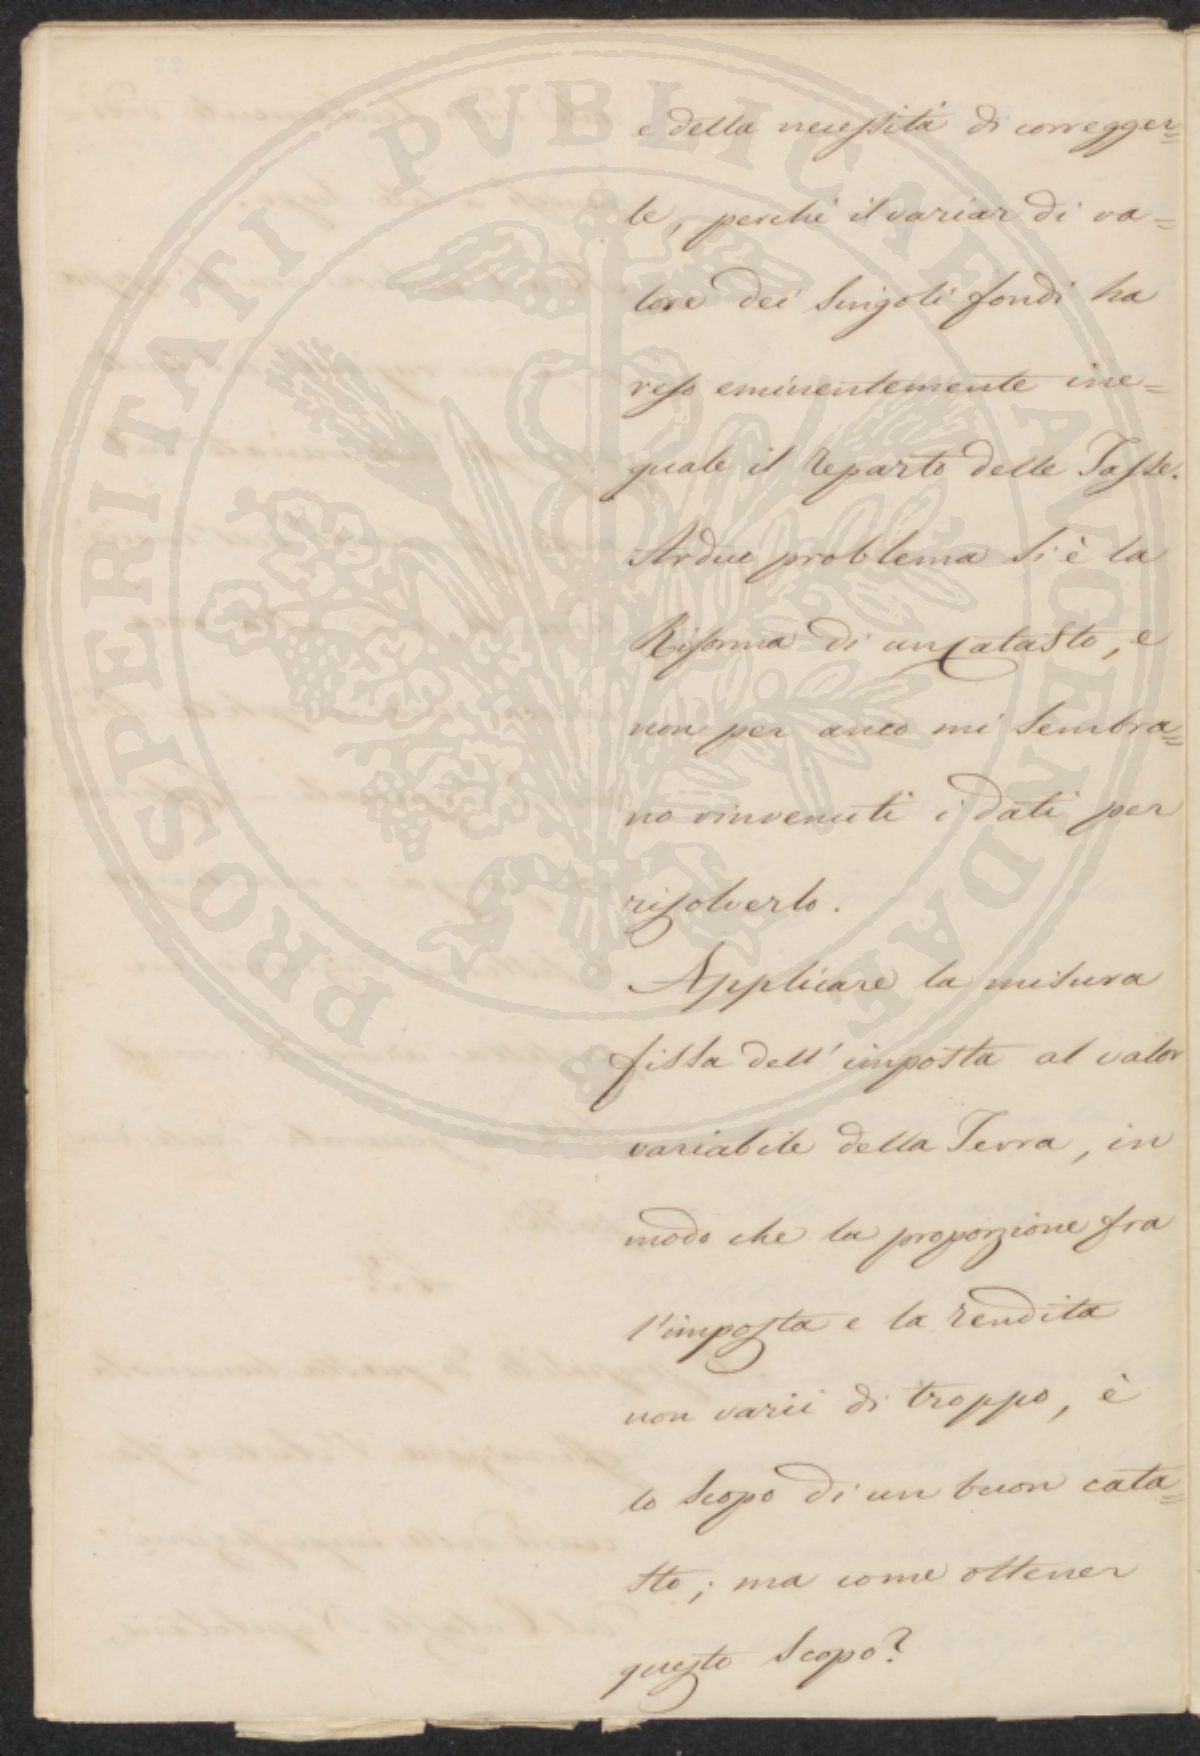 PROSPERITATI PVBLICAE AVGENDAE
e della necessità di corregger=
le, perchè il variar di va=
lore dei singoli fondi ha
reso eminentemente ine=
guale il reparto delle Tasse.
Arduo problema si è la
Riforma di un Catasto, e
non per anco mi sembra=
no rinvenuti i dati per
risolverlo.
Applicare la misura
fissa dell' imposta al valor
variabile della Terra, in
modo che la proporzione fra
l'imposta e la rendita
non varii di troppo, è
lo scopo di un buon cata=
sto; ma come ottener
questo scopo?